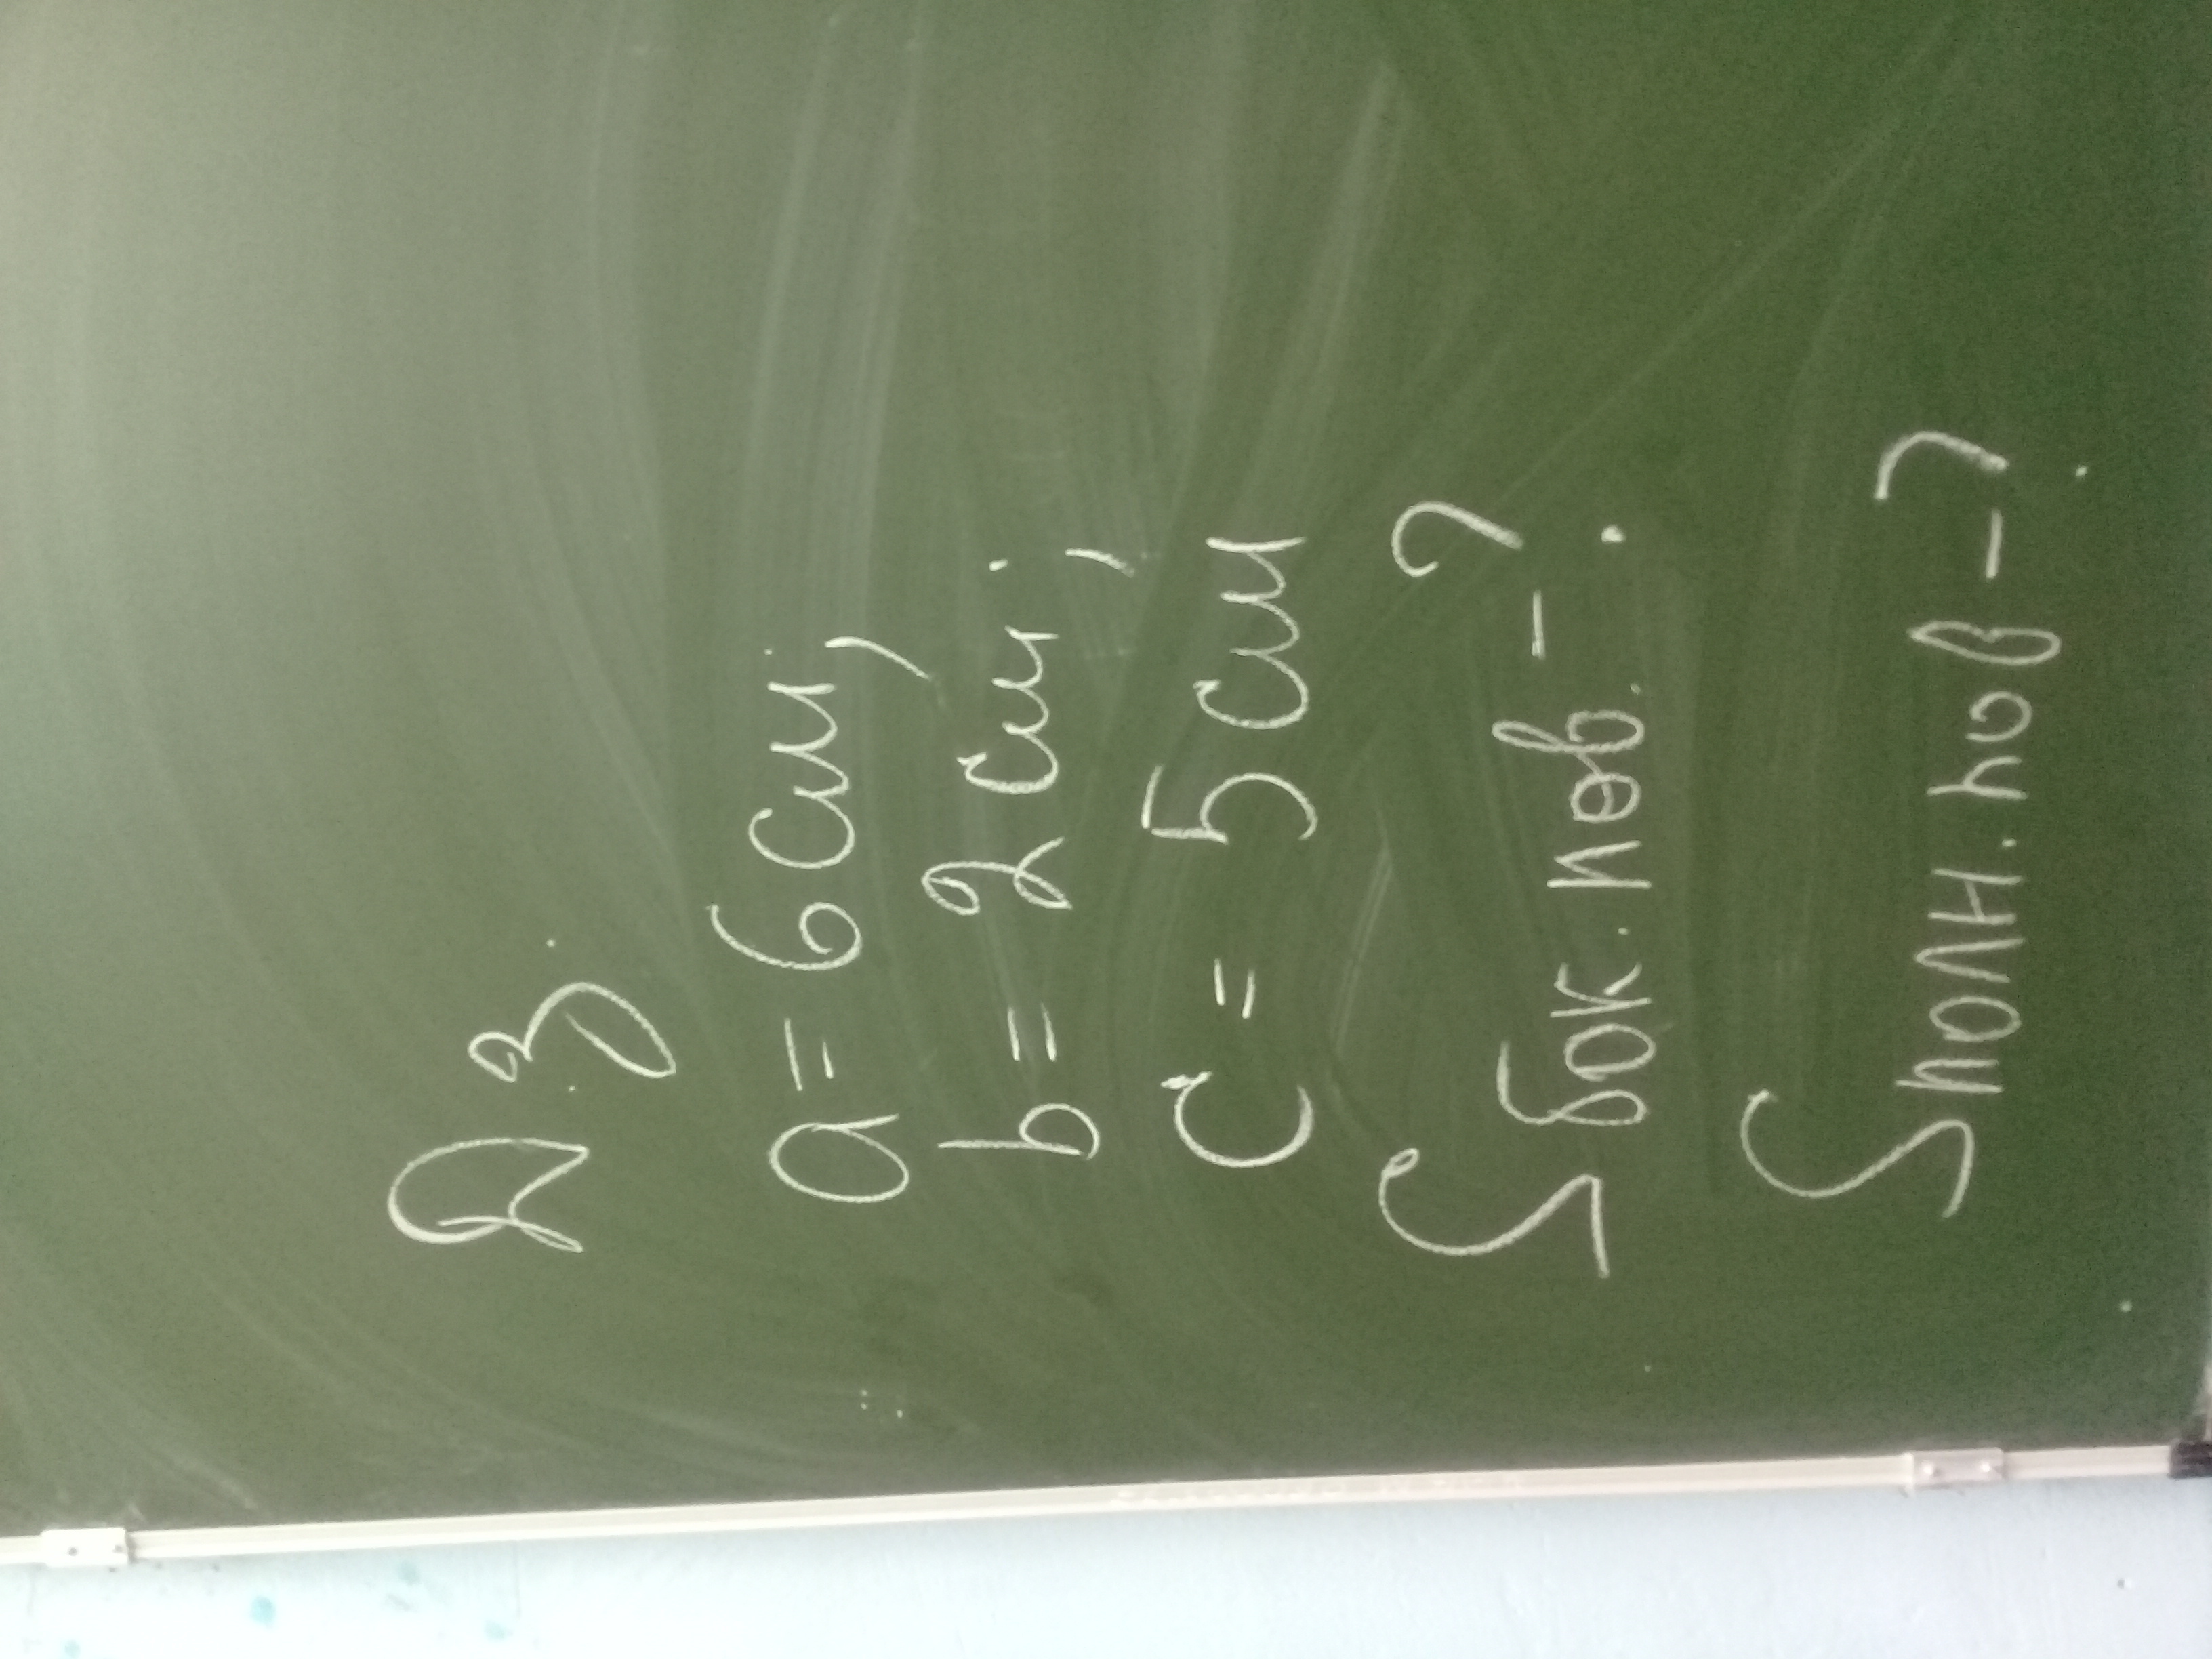 Д З
a = 6 см,
b = 2 см,
c = 5 см
S бок. пов. - ?
S полн. пов - ?